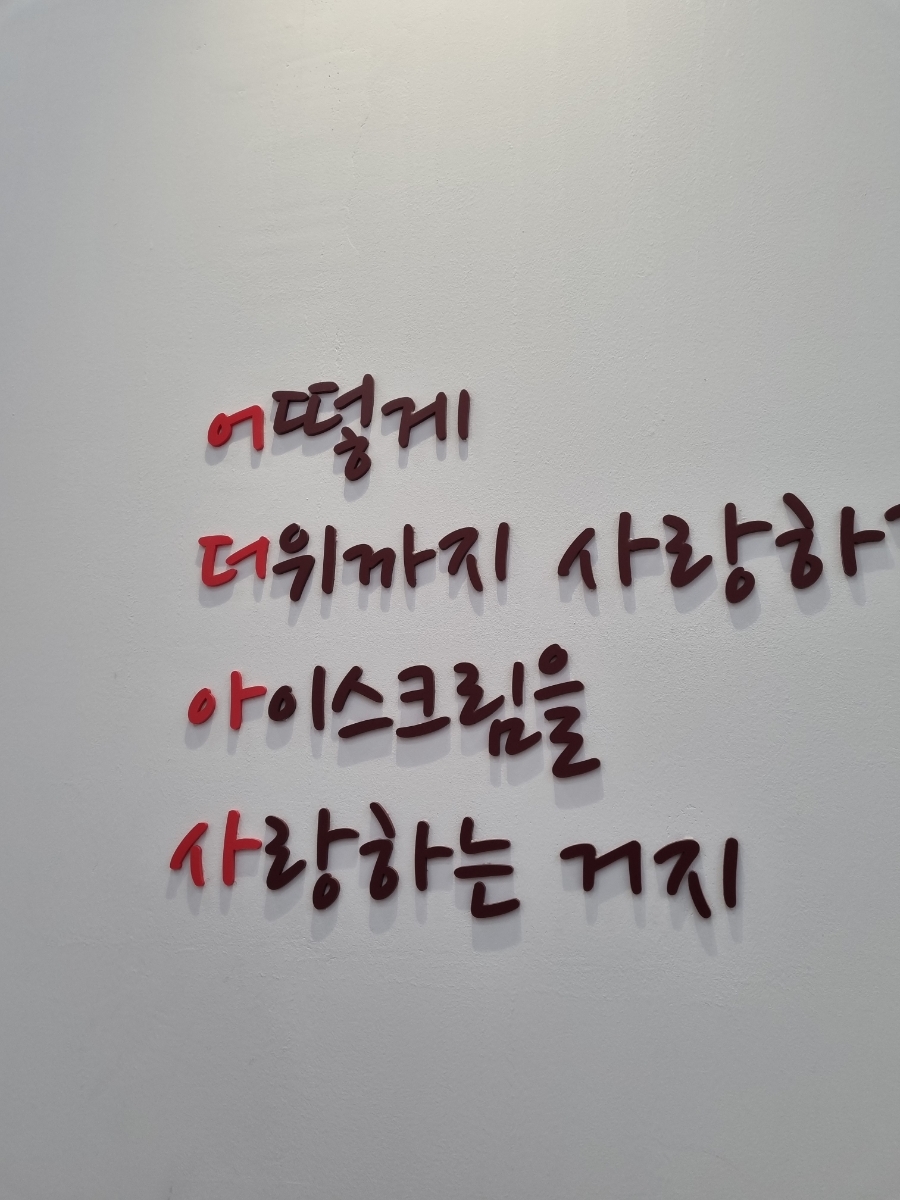 어떻게
더위까지 사랑하
아이스크림을
사랑하는 거지